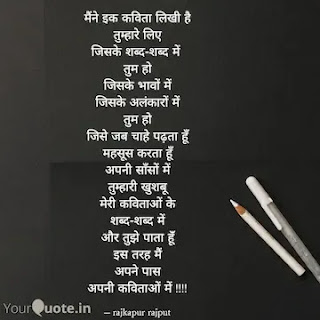 मैंने इक कविता लिखी है
तुम्हारे लिए
जिसके शब्द-शब्द में
तुम हो
जिसके भावों में
जिसके अलंकारों में
तुम हो
जिसे जब चाहे पढ़ता हूँ
महसूस करता हूँ
अपनी साँसों में
तुम्हारी खुशबू
मेरी कविताओं के
शब्द-शब्द में
और तुझे पाता हूँ
इस तरह मैं
अपने पास
अपनी कविताओं में !!!!
— rajkapur rajput
YourQuote.in